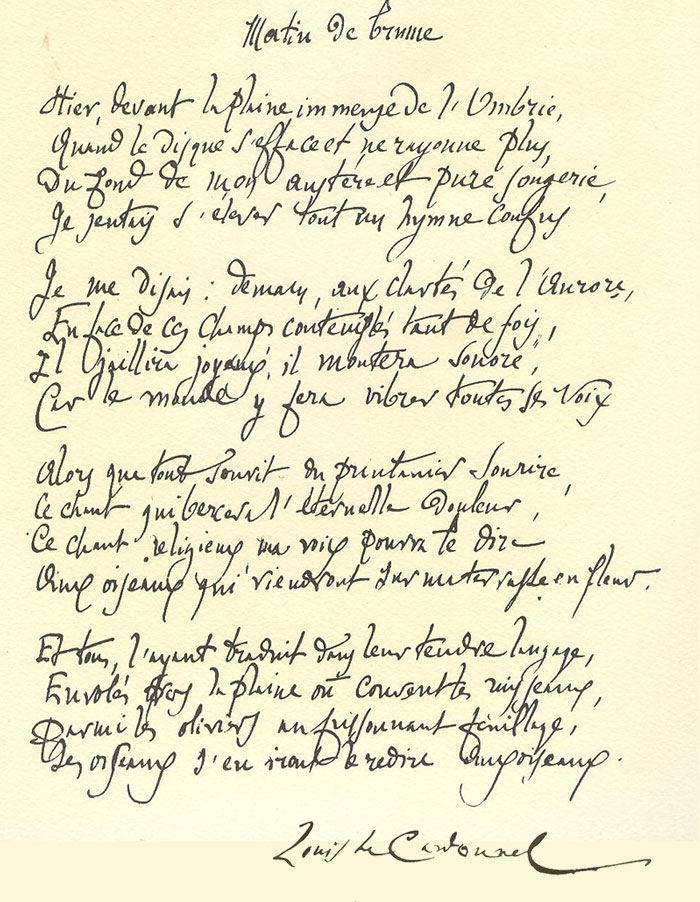 Matin de brume
Hier, devant la plaine immense de l'Ombrie,
Quand le disque s'efface et ne rayonne plus,
Du fond de mon austère et pure songerie,
Je sentais s'élever tout un hymne confus
Je me disais : demain, aux clartés de l'Aurore,
En face de ces champs contemplés tant de fois,
Il jaillira joyeux, il montera sonore,
Car le monde y fera vibrer toutes ses voix
Alors que tout sourit du printanier sourire,
Ce chant qui bercera l'éternelle Douleur,
Ce chant religieux ma voix pourra le dire
Aux oiseaux qui viendront sur ma terrasse en fleur.
Et tous, l'ayant traduit dans leur tendre langage,
Envolés vers la plaine où courent les ruisseaux,
Parmi les oliviers au frissonnant feuillage,
Les oiseaux s'en iront le redire aux oiseaux.
Louis Le Cardonnel